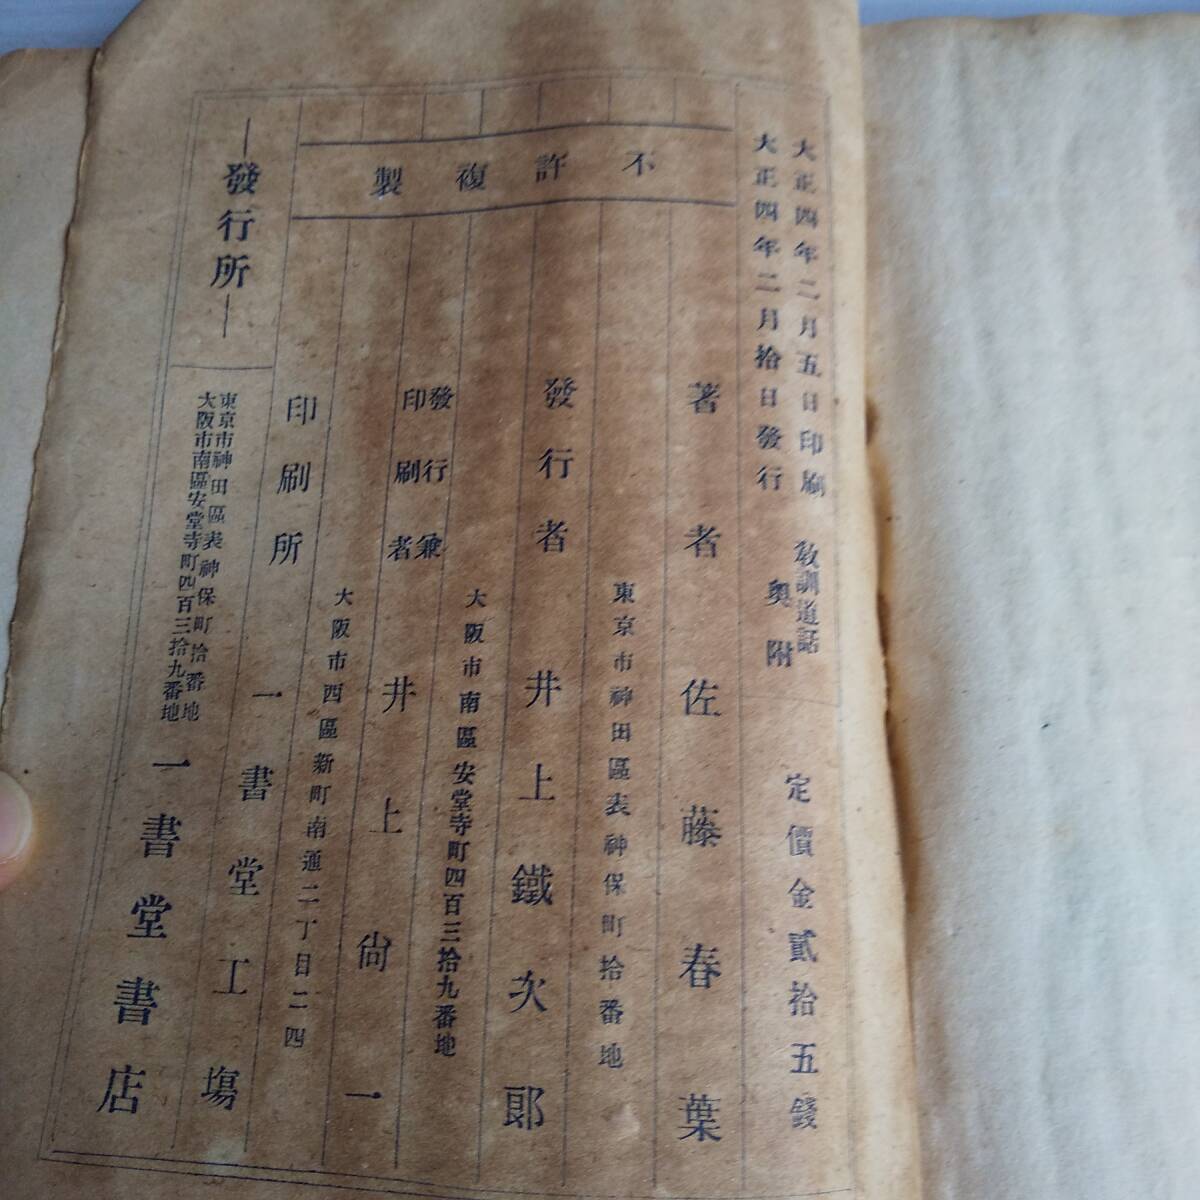 大正四年二月五日印刷
大正四年二月拾日發行
教訓道話
奥附
定價金貳拾五錢
不許複製
著者 佐藤春葉
東京市神田區表神保町拾番地
發行者 井上鐵次郎
大阪市南區安堂寺町四百三拾九番地
發行兼
印刷者
井上尙一
大阪市西區新町南通二丁目二四
印刷所 一書堂工塲
發行所
東京市神田區表神保町拾番地
大阪市南區安堂寺町四百三拾九番地
一書堂書店